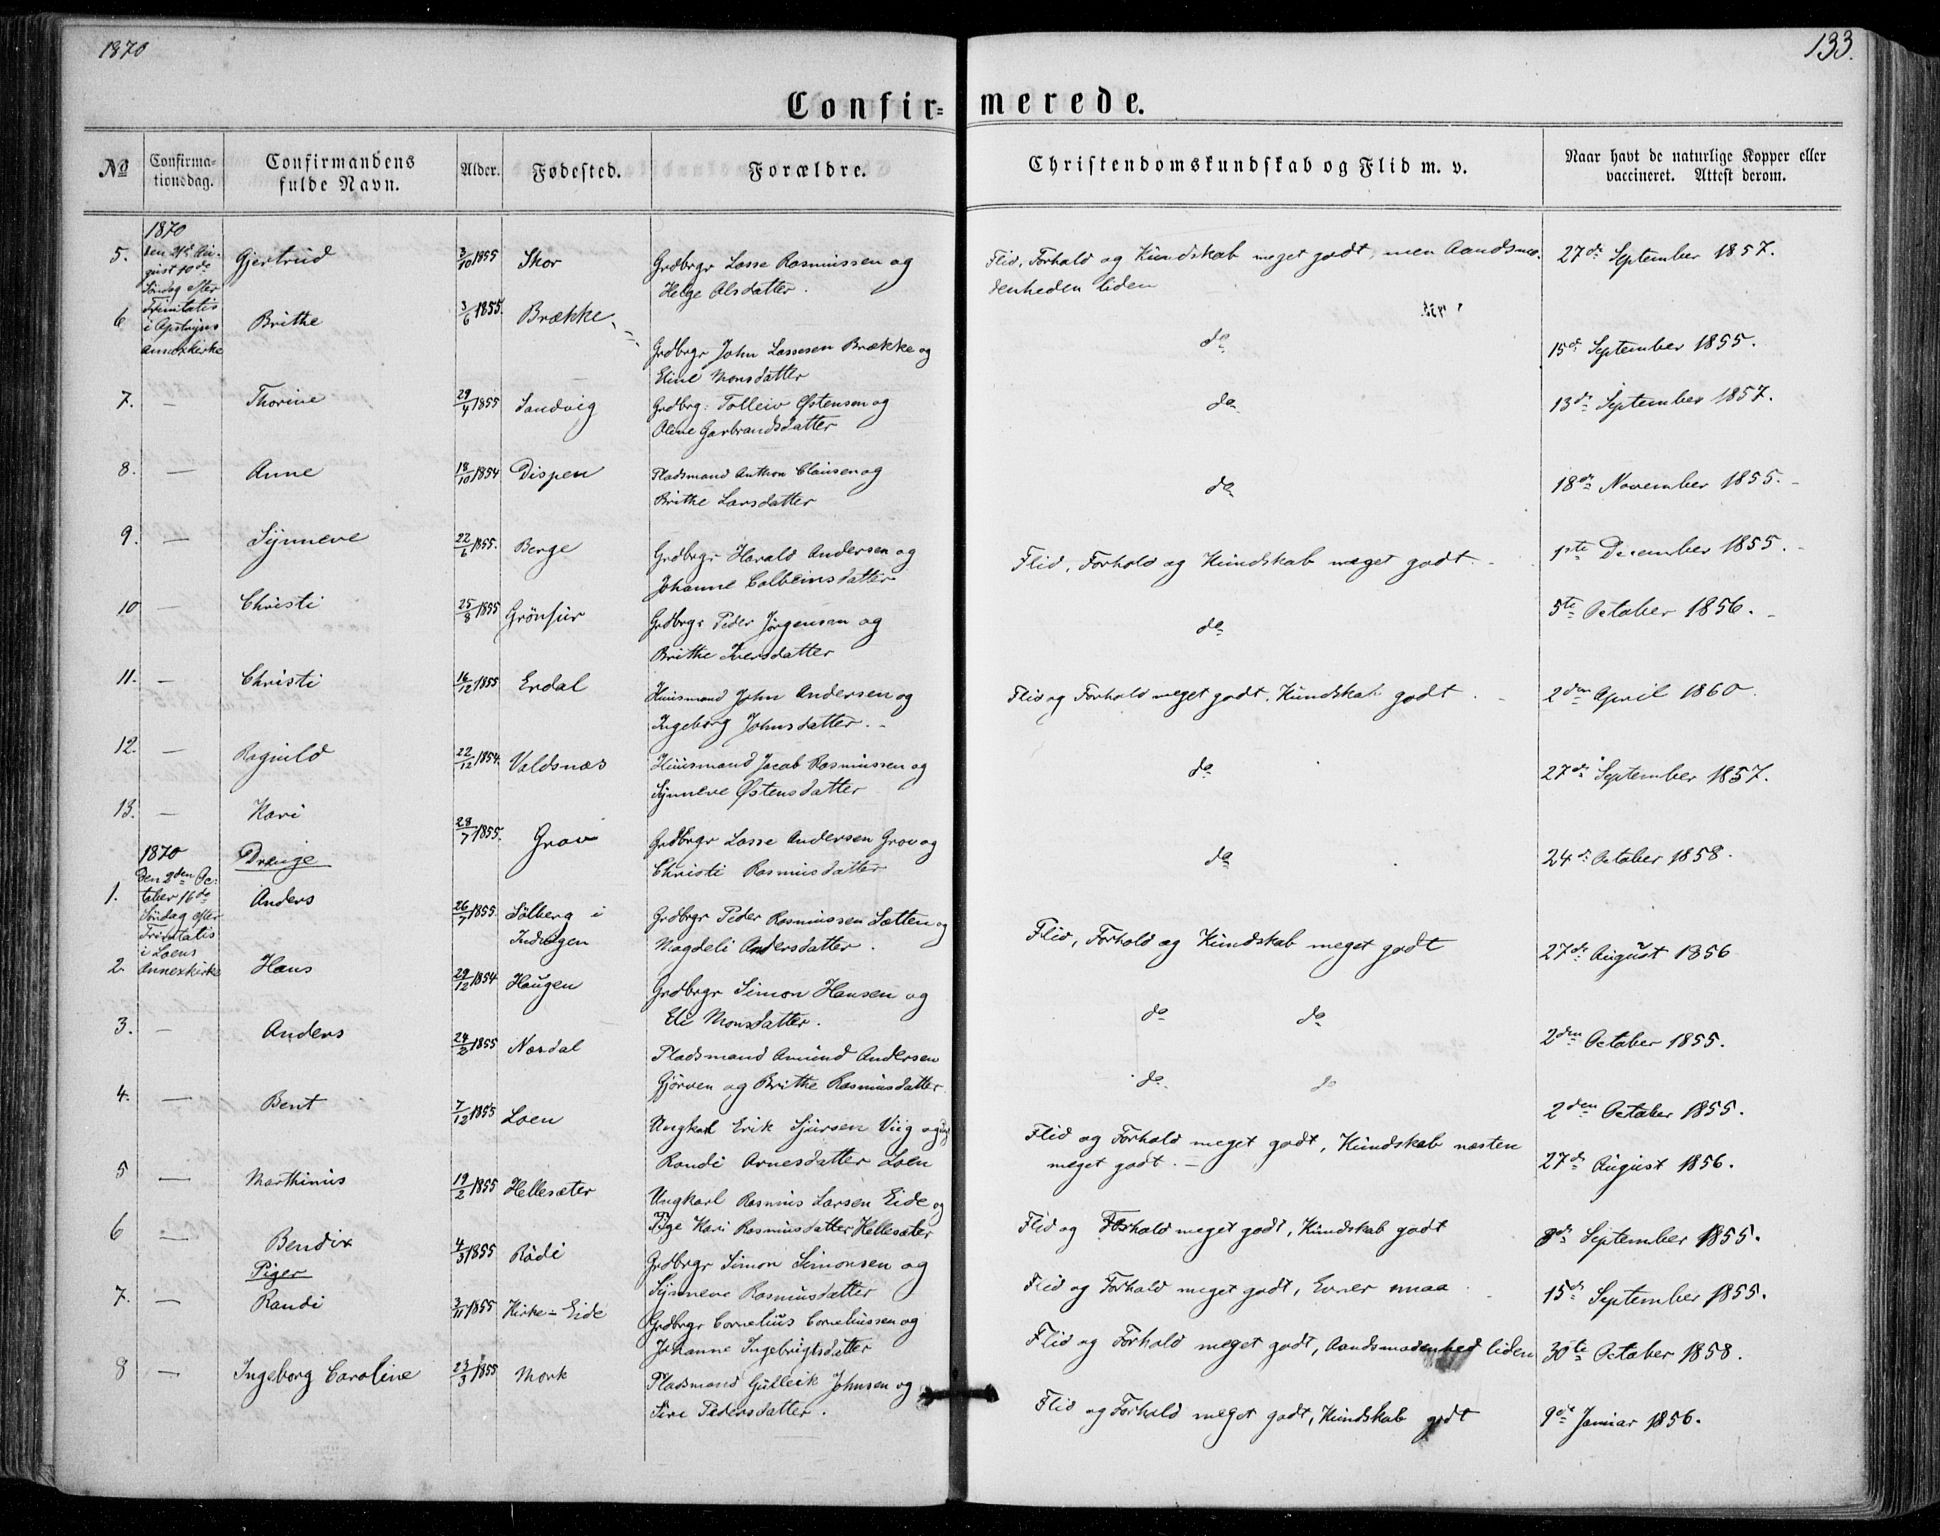 1870
133.
Confir=merede.
No
Confirma-tionsdag.
Confirmandens fulde Navn.
Alder.
Fødested.
Forældre.
Christendomskundskab og Flid m. v.
Naar havt de naturlige Kopper eller vaccineret. Attest derom.
1870
den 21de Au-
gust 10de
Søndag efter
Trinitatis
i Opstryns
Annexkirke
5. Gjertrud 3/10 1855 Skor Grdbrgr Lasse Rasmussen og
Helge Olsdatter.
Flid, Forhold og Kundskab meget godt, men Aandsmo-
denheden liden
27de September 1857.
6 Brithe 3/6 1855. Brække
Grdbrgr John Lassesen Brække og
Eline Monsdatter
do
15de September 1855.
7. — Thorine 29/4 1855 Sandvig Grdbrg: Tolleiv Østensen og
Oline Garbrandsdatter
do
13de September 1857.
8. — Anne 18/10 1854 Dispen Pladsmand Anthon Clausen og
Brithe Larsdatter
do
18de November 1855.
9. — Synneve 22/6 1855. Berge Grdbrgr Harald Andersen og
Johanne Colbeinsdatter
Flid, Forhold og Kundskab meget godt.
1ste December 1855.
10 — Christi 25/8 1855 Grønfur Grdbrgr Peder Jørgensen og
Brithe Iversdatter
do
5te October 1856.
11. — Christi 16/12 1855 Erdal Huusmand John Andersen og
Ingeborg Johnsdatter.
Flid og Forhold meget godt, Kundskab godt.
2den April 1860.
12. — Ragnild 22/12 1854. Valdsnæs Huusmand Jacob Rasmussen og
Synneve Østensdatter
do
27de September 1857.
13. — Kari 28/7 1855. Grov Grdbrgr Lasse Andersen Grov og
Christi Rasmusdatter
do
24de October 1858.
1870
Drenge
Den 2den Oc-
tober 16de
Søndag efter
Trinitatis
i Loens
Annexkirke
1. Anders 26/7 1855. Solberg i
Indvigen
Grdbrgr Peder Rasmussen Sætten og
Magdeli Andersdatter.
Flid, Forhold og Kundskab meget godt
27de August 1856
2. Hans 29/12 1854 Haugen Grdbrgr Simon Hansen og
Eli Monsdatter.
do do
2den October 1855.
3. — Anders 24/2 1855 Nærdal Pladsmand Amund Andersen
Gjørven og Brithe Rasmusdatter
do. do
2den October 1855.
4. — Bent 7/12 1855 Loen Ungkarl Erik Sjursen Viig og
Randi Arnesdatter Loen
Flid og Forhold meget godt, Kundskab næsten
meget godt.
27de August 1856.
5 — Marthinus 19/2 1855 Hellesæter Ungkarl Rasmus Larsen Eide og
Pige Kari Rasmusdatter Hellesæter
Flid og Forhold meget godt, Kundskab godt
8de September 1855.
6 — Bendix 4/3 1855 Rødi Grdbrgr Simon Simonsen og
Synneve Rasmusdatter
Flid og Forhold meget godt, Evner smaa
15de September 1855.
Piger
7. — Randi 3/11 1855 Kirke-Eide Grdbrgr Cornelius Corneliussen og
Johanne Ingebrigtsdatter
Flid og Forhold meget godt, Aandsmodenhed liden
30te October 1858.
8 — Ingeborg Caroline 23/3 1855 Mork Pladsmand Gulleik Johnsen og
Siri Pedersdatter.
Flid og Forhold meget godt, Kundskab godt
9de Januar 1856.